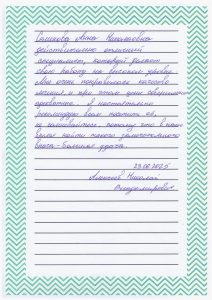 Сашкова Анна Николаевна
действительно отличный
специалист, который делает
свою работу на высоком уровне.
Мне очень понравилось качество
лечения и при этом цены совершенно
адекватны. Я настоятельно
рекомендую всем посетить её,
не сомневайтесь, потому что в наше
время найти такого замечательного
врача - большая удача.
23.02.2025
Алексеев Николай
Владимирович